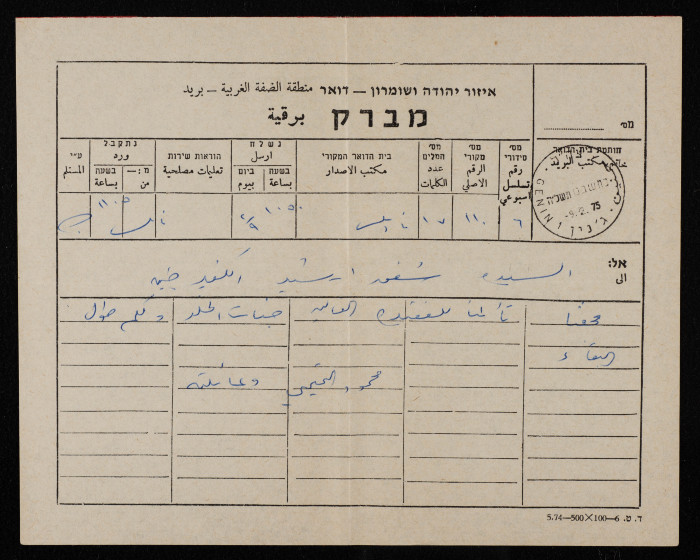 איזור יהודה ושומרון — דואר منطقة الضفة الغربية — بريد
מברק برقية
מס׳
חותמת בית הדואר
خاتم مكتب البريد
GENIN ג׳נין
-9.2.75
מס׳ סידורי رقم تسلسل أسبوعي
מס׳ מקורי الرقم الاصلي
מס׳ המלים عدد الكلمات
בית הדואר המקורי مكتب الاصدار
נשלח ارسل
בשעה بساعة
ביום بيوم
הוראות שירות تعليمات مصلحية
נתקבל ورد
מ:— من
בשעה بساعة
ע״י المستلم
٦ ١١٠ ١٧ نابلس ١٠٥٠ ٩/٢ نابلس ١١٠٥
אל:
الى
السيده شفيق ارشيد الكفير جنين
محفنا تأثرنا للفقيده الغاليه جنات الخلد ولكم طوال
البقاء
محمود التميمي وعائلته
ד. ט. 6—100×500—5.74